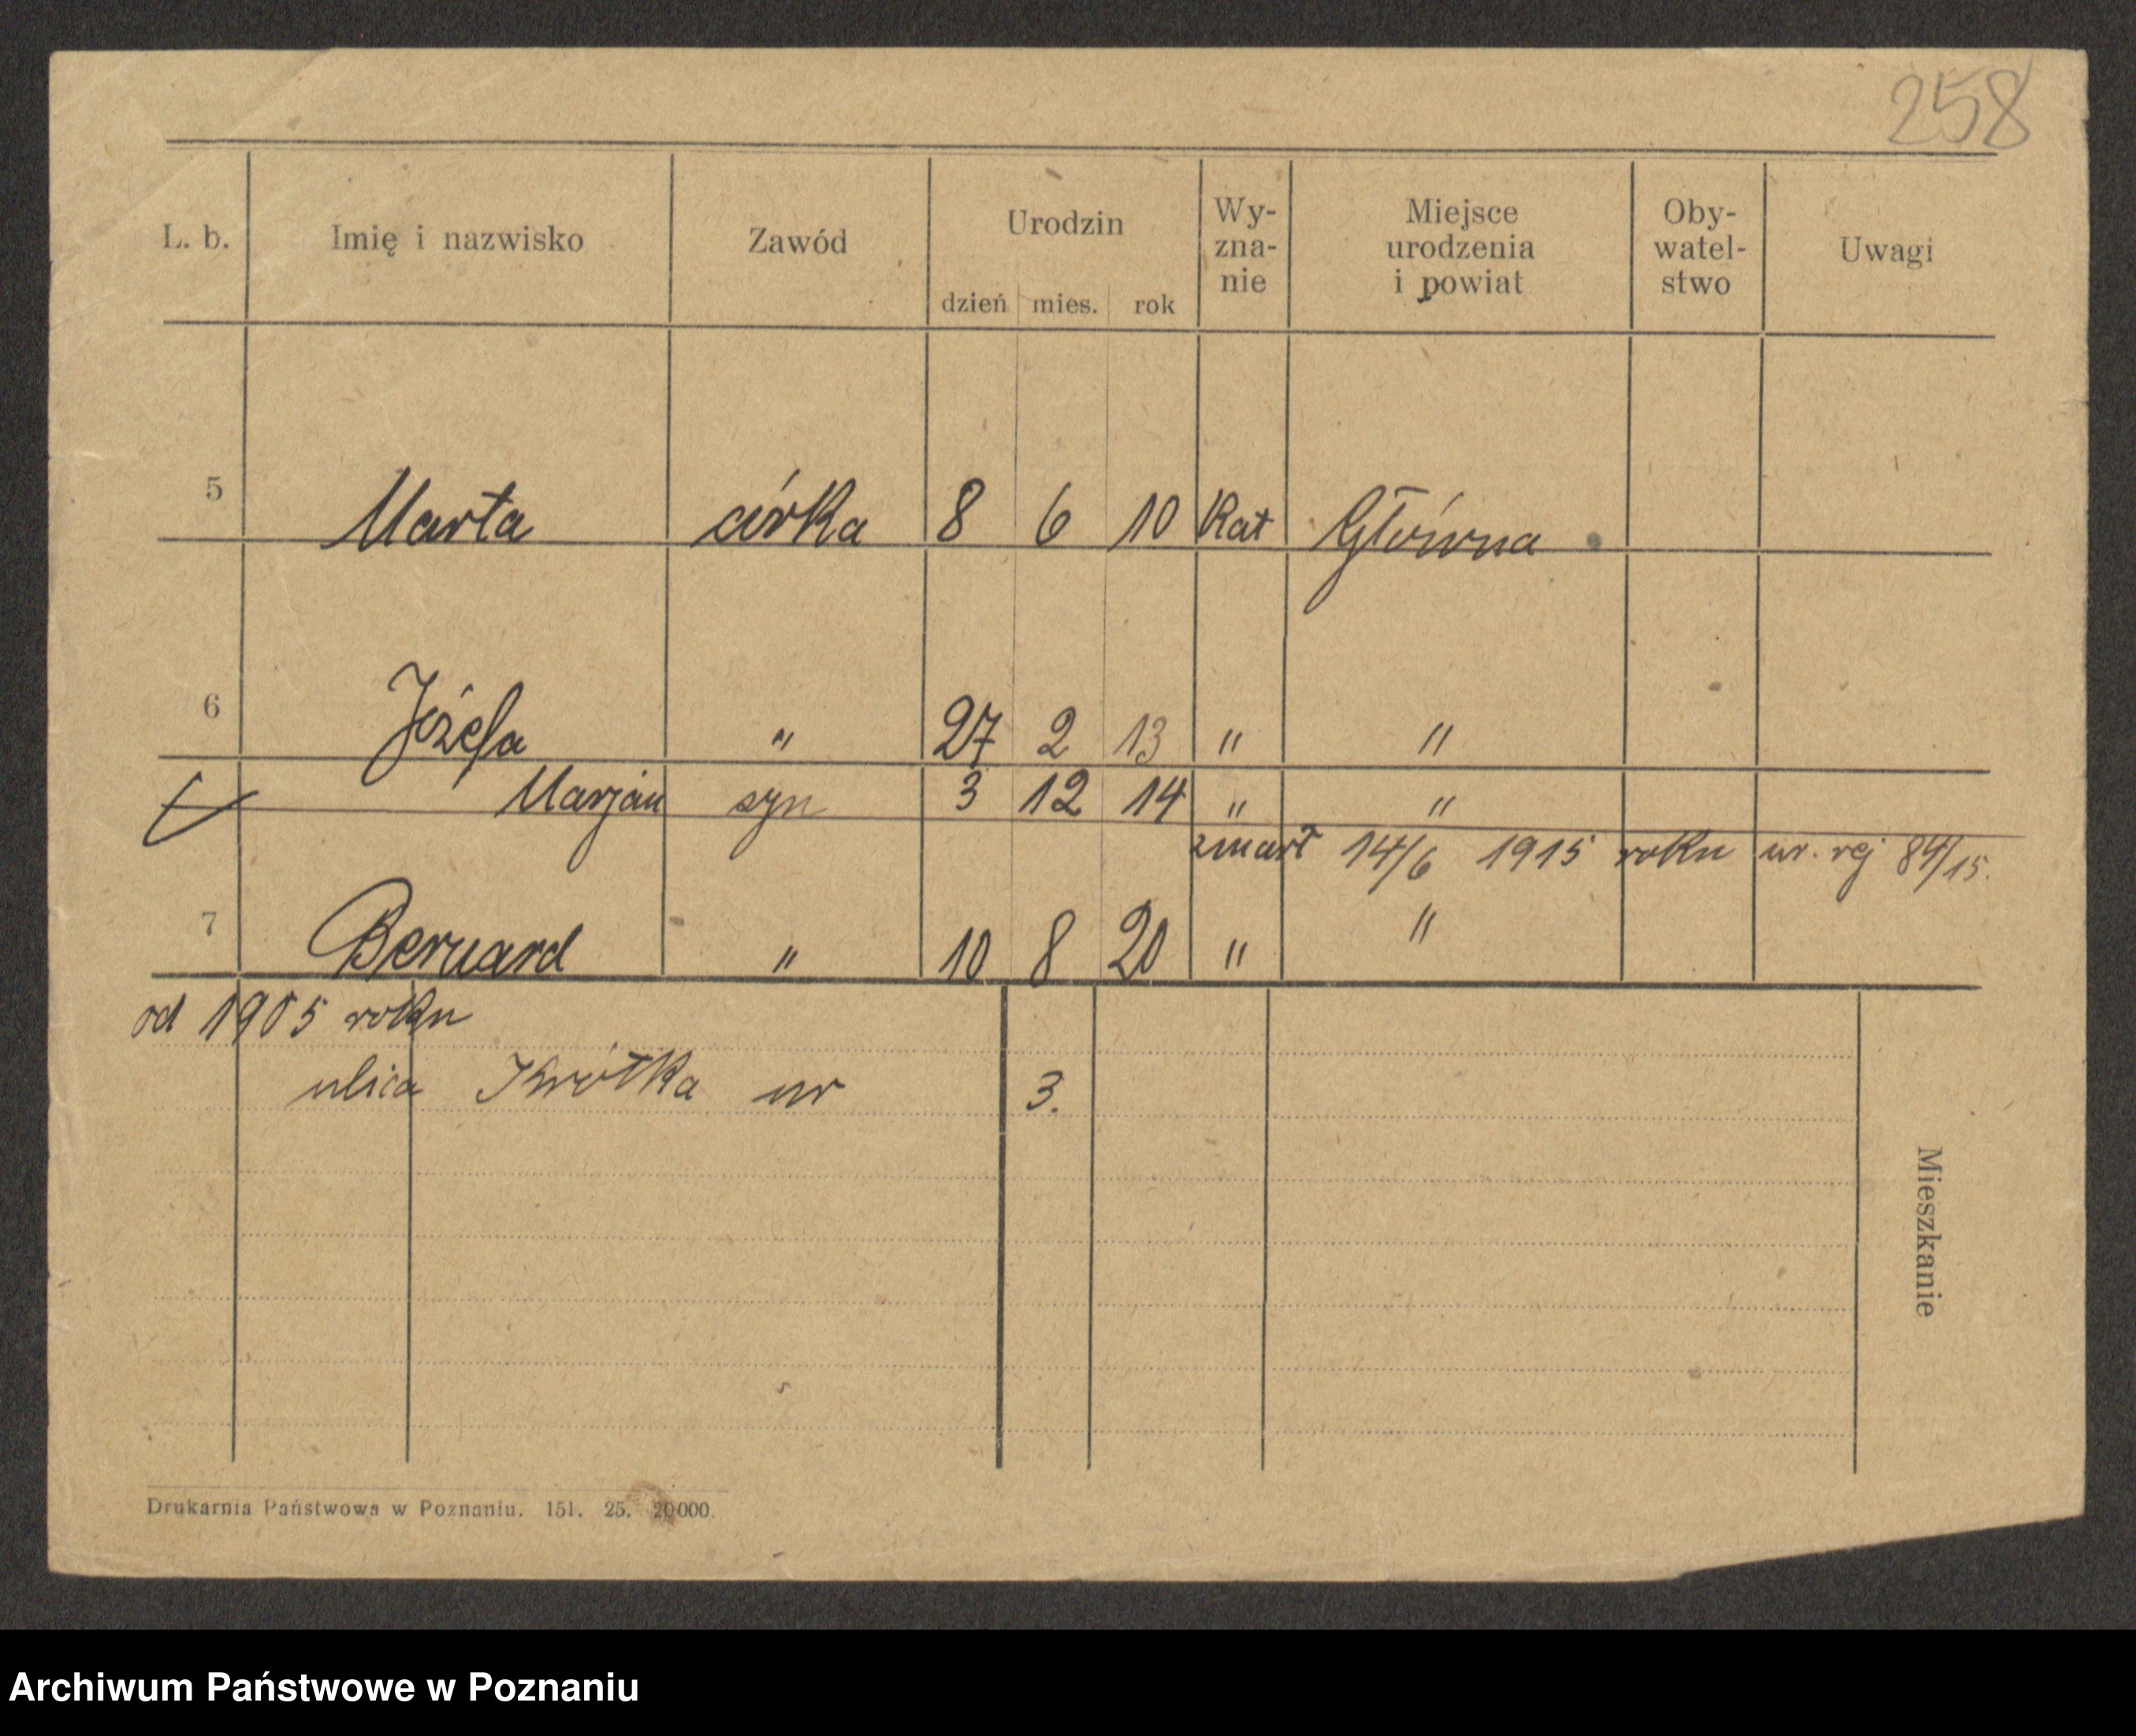 258
L. b. Imię i nazwisko Zawód Urodzin Wy-zna-nie Miejsce urodzenia i powiat Oby-watel-stwo Uwagi
dzień mies. rok
5 Marta córka 8 6 10 Kat Główna
6 Józefa " 27 2 13 " "
Marjan syn 3 12 14 " "
zmarł 14/6 1915 roku nr. rej 84/15.
7 Bernard " 10 8 20 " "
od 1905 roku
ulica Krótka nr 3.
Mieszkanie
Drukarnia Państwowa w Poznaniu. 151. 25. 20000.
Archiwum Państwowe w Poznaniu